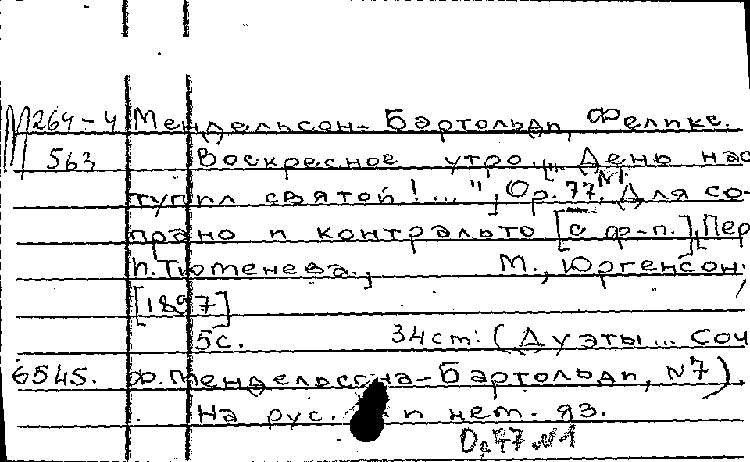 М264-4 Мендельсон-Бартольди, Феликс.
563 Воскресное утро „День нас
тупил святой!...", Op. 77, N1. Для со-
прано и контральто [с ф-п.], Пер
П. Тютенева., М., Юргенсон,
[1897]
5с. 34cm. (Дуэты... Соч
6545. Ф. Мендельсона-Бартольди, N7).
На рус. и нем. яз.
Op 77 N1